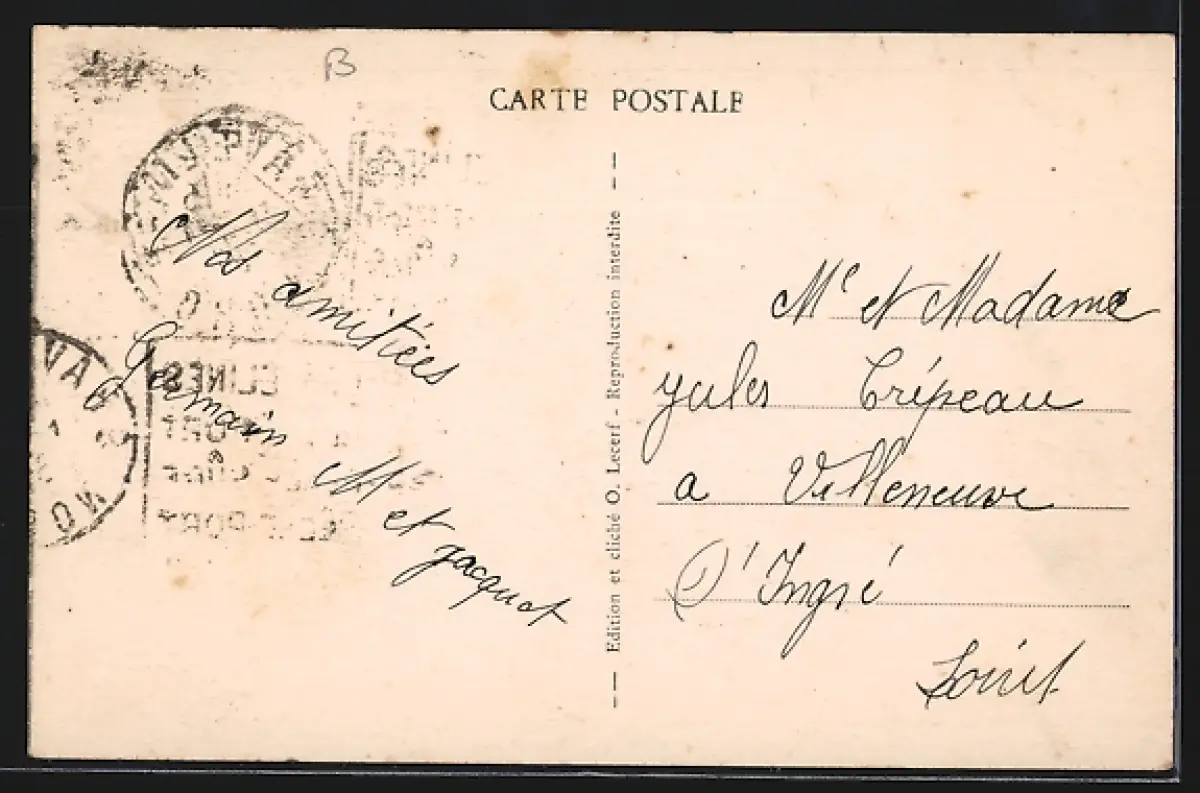 B
CARTE POSTALE
Nos amitiées
Germain M et Jacquot
Edition et cliché O. Lecerf - Reproduction interdite
Mr et Madame
Jules Crépeau
a Villeneuve
D'Ingré
Loiret